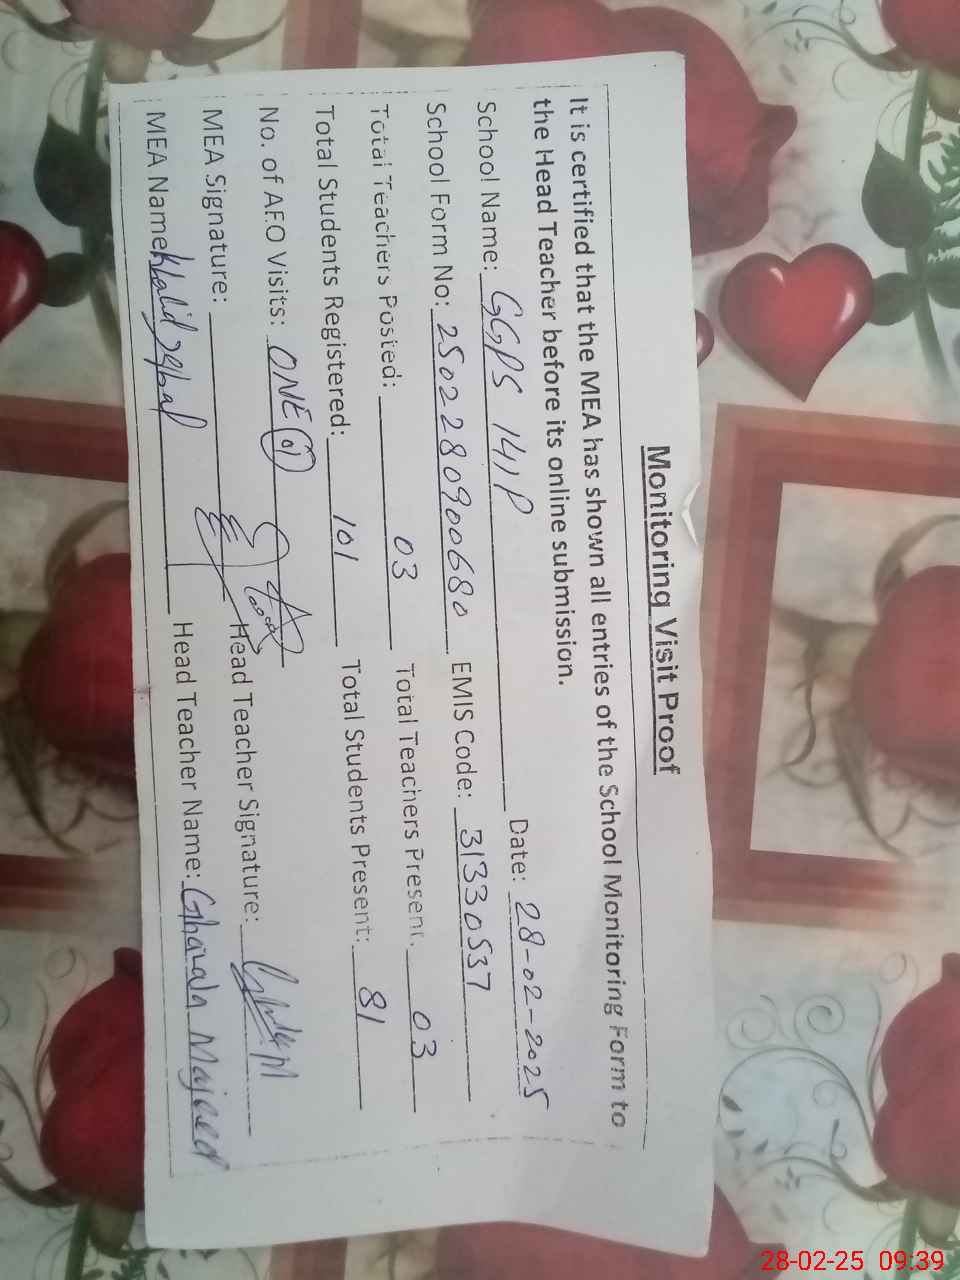 Monitoring Visit Proof
It is certified that the MEA has shown all entries of the School Monitoring Form to
the Head Teacher before its online submission.
School Name: GGPS 141P Date: 28-02-2025
School Form No: 250228090068० EMIS Code: 31330537
Total Teachers Posted: 03 Total Teachers Present: 03
Total Students Registered: 101 Total Students Present: 81
No. of AEO Visits: ONE (01)
MEA Signature: Head Teacher Signature:
MEA Name: Khalid Iqbal Head Teacher Name: Ghazala Majeed
28-02-25 09:39